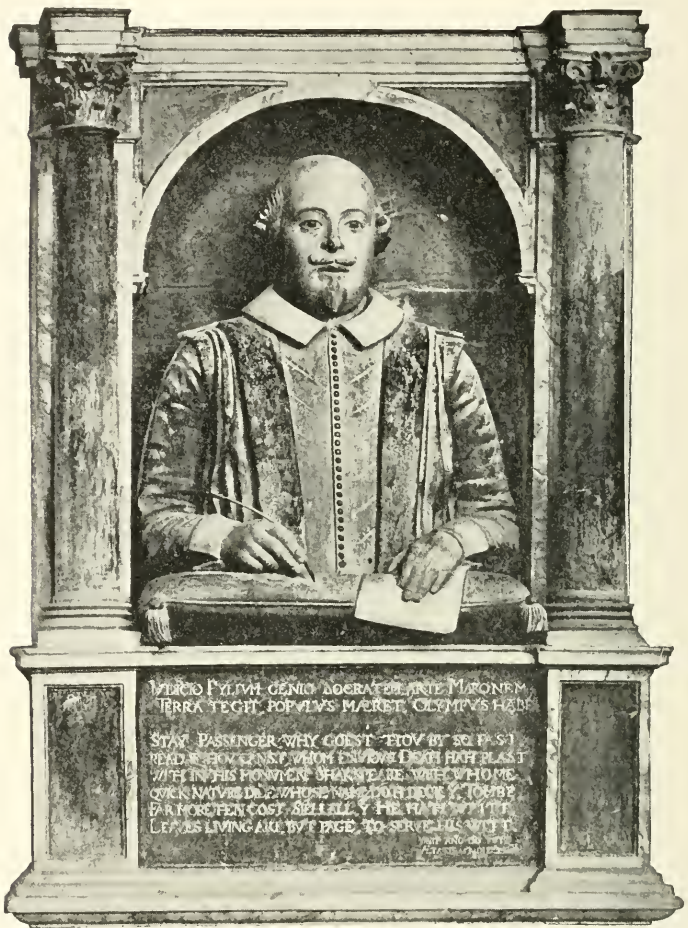 IVDICIO PYLIVM GENIO SOCRATEM ARTE MARONEM
TERRA TEGIT, POPVLVS MÆRET, OLYMPVS HABET
STAY PASSENGER WHY GOEST THOV BY SO FAST
READ IF THOV CANST, WHOM ENVIOVS DEATH HATH PLAST
WITH IN THIS MONVMENT SHAKSPEARE WITH WHOME
QVICK NATVRE DIDE WHOSE NAME DOTH DECK Y TOMBE
FAR MORE THEN COST SIEH ALL Y HE HATH WRITT
LEAVES LIVING ART, BVT PAGE, TO SERVE HIS WITT